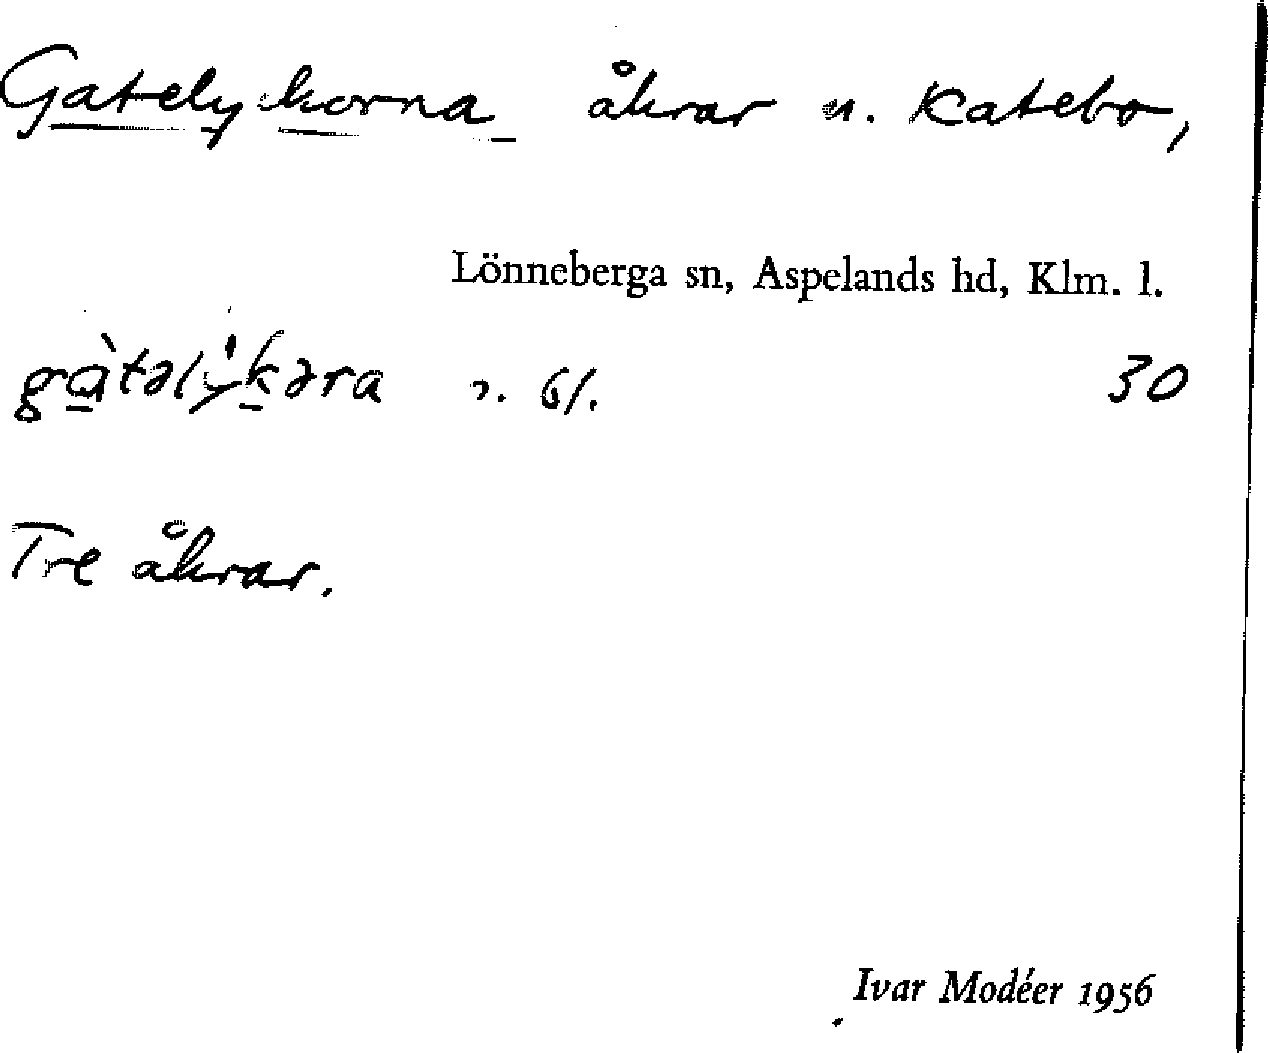 Gatelyckorna åkrar n. Katebo,
Lönneberga sn, Aspelands hd, Klm. l.
gàtəlýkəra 30
Tre åkrar.
Ivar Modéer 1956